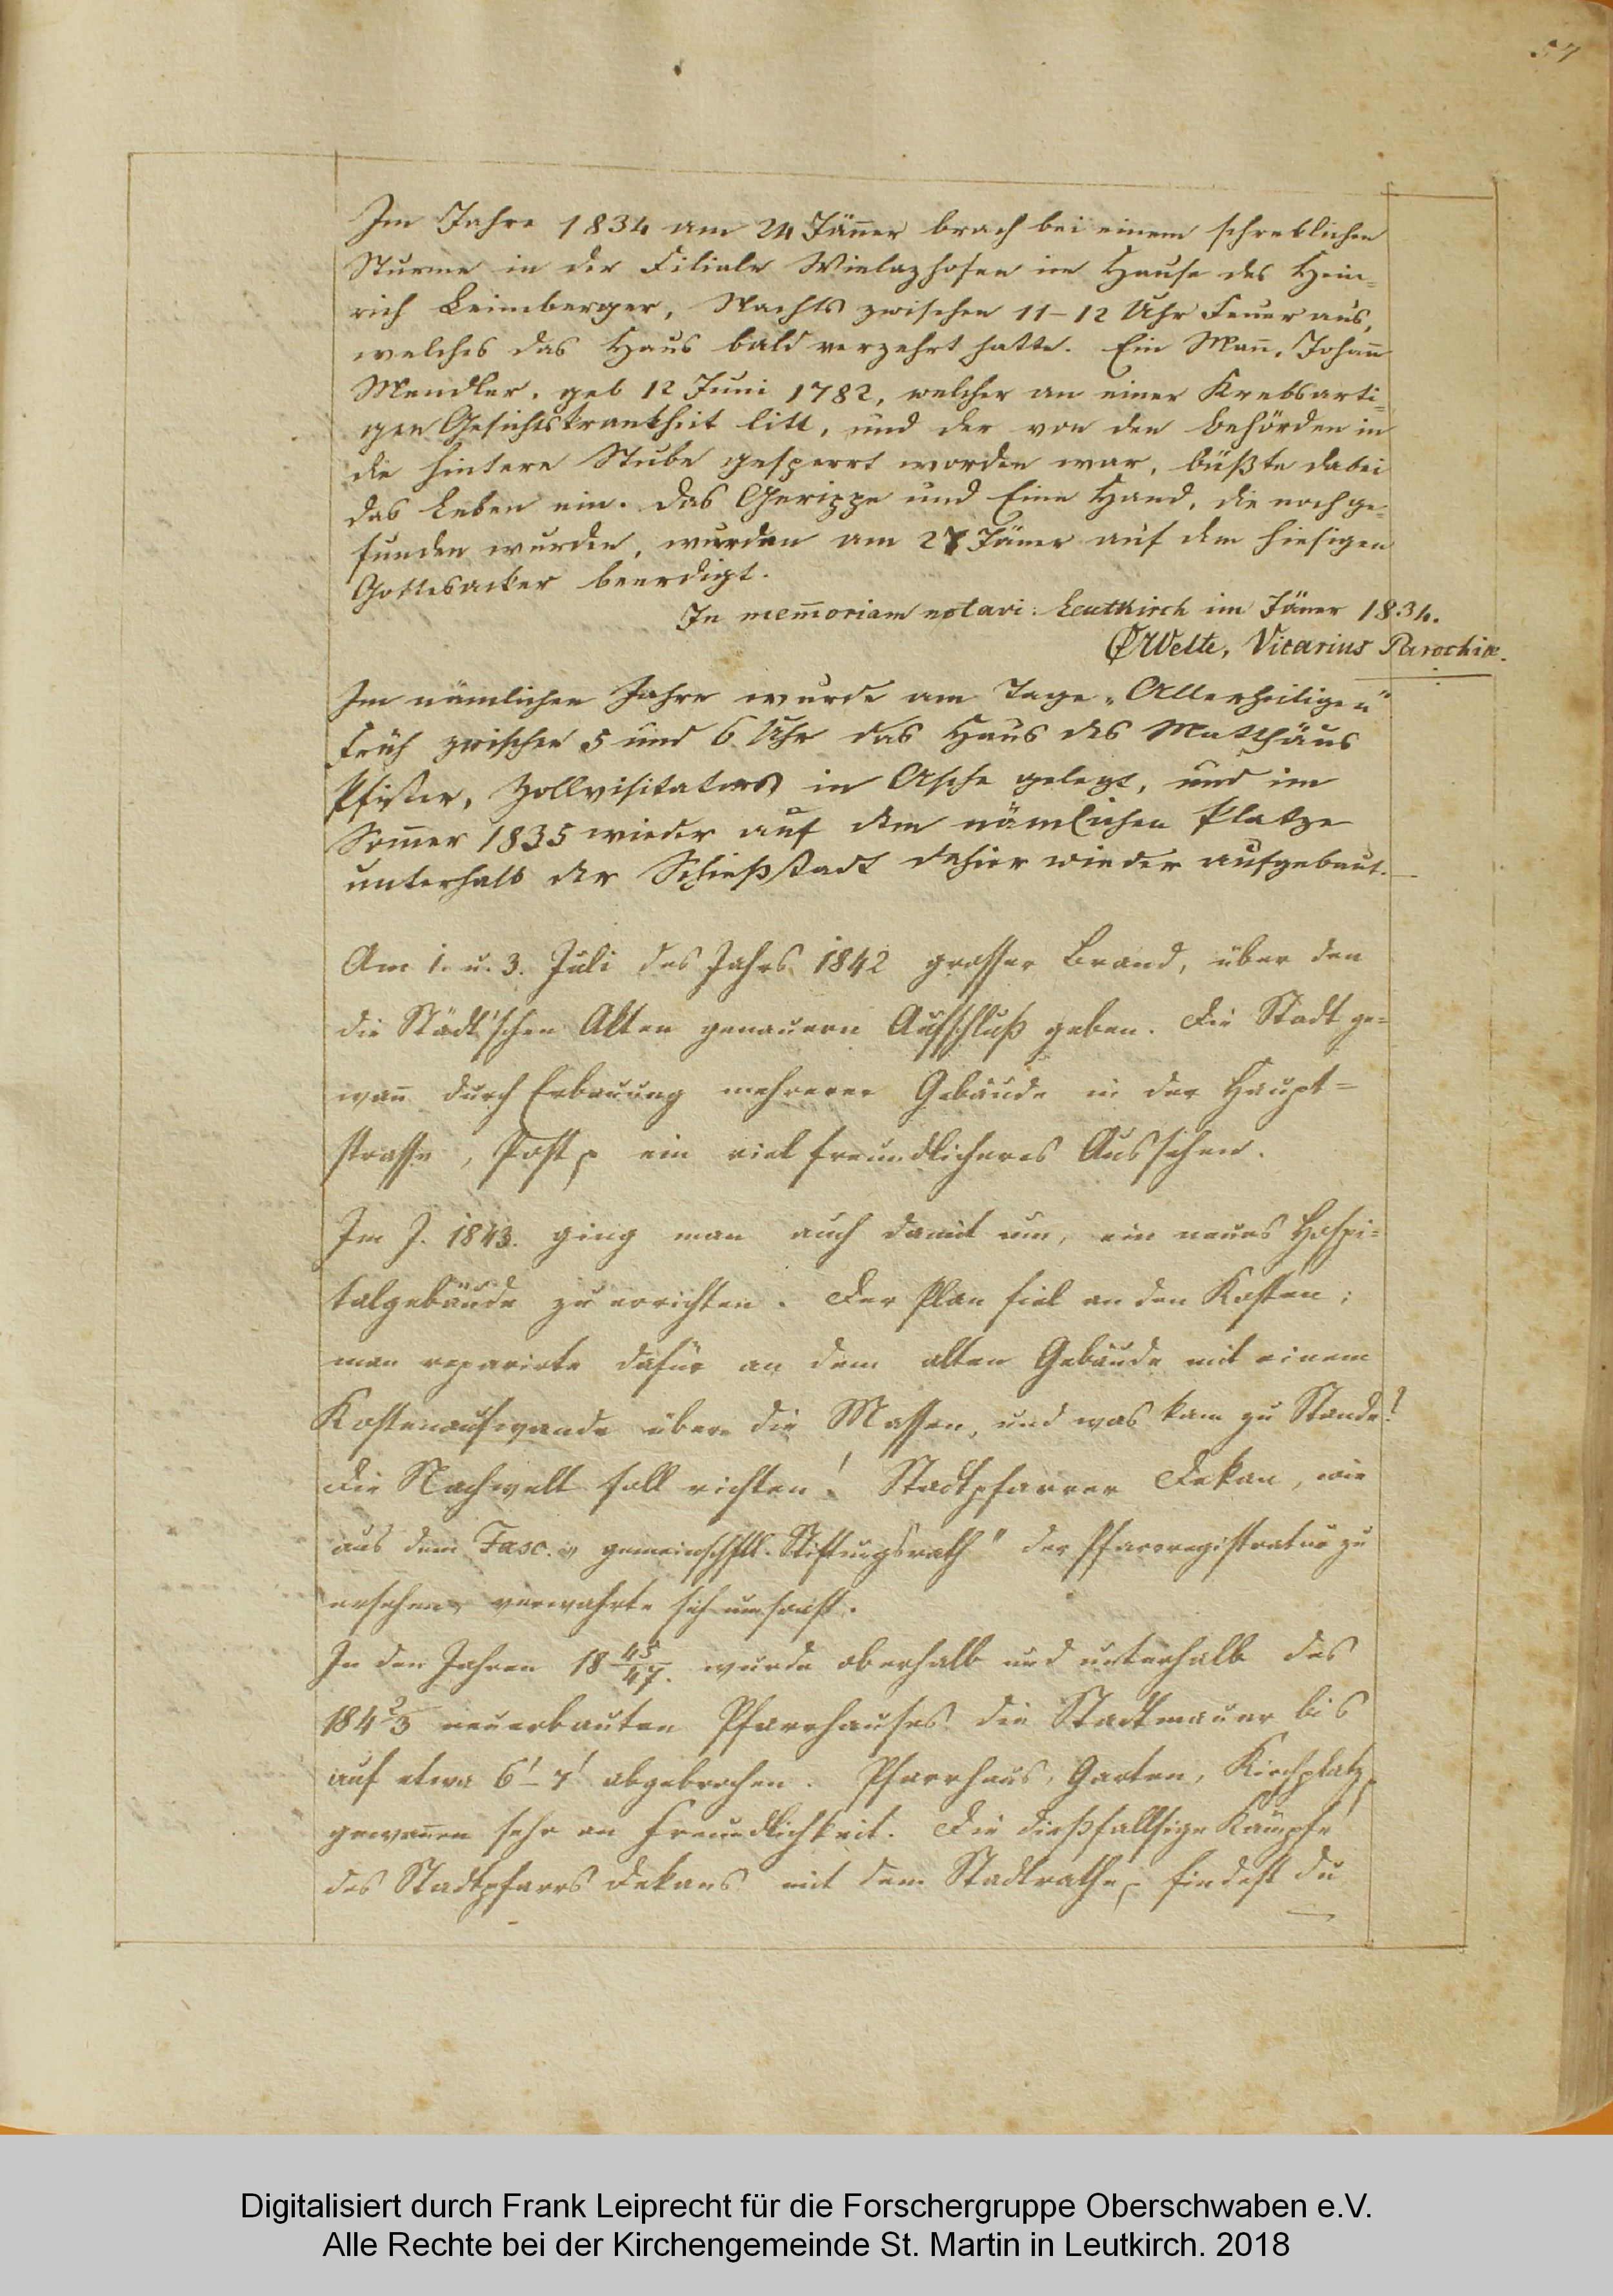 57
Im Jahre 1834 am 24 Jäner brach bei einem schreklichen
Sturme in der Filiale Wielazhofen im Hause des Hein=
rich Leimberger, Nachts zwischen 11-12 Uhr Feuer aus,
welches das Haus bald verzehrt hatte. Ein Mann, Johann
Mendler, geb 12 Juni 1782, welcher an einer Krebsarti=
gen Gesichtskrankheit litt, und der von den behörden in
die hintere Stube gesperrt worden war, büßte dabei
das Leben ein. Das Gerippe und Eine Hand, die noch ge=
funden wurden, wurden am 27 Jäner auf dem hiesigen
Gottesacker beerdigt.
In memoriam notavi: Leutkirch im Jäner 1834.
Welte, Vicarius Parochiæ.
Im nämlichen Jahre wurde am Tage „Allerheiligen"
früh zwischen 5 und 6 Uhr das Haus des Matthäus
Pfister, Zollvisitators in Asche gelegt, und im
Somer 1835 wieder auf dem nämlichen Platze
unterhalb der Schießstadt dahier wieder aufgebaut.
Am 1. u. 3. Juli des Jahrs 1842 grosser Brand, über den
die Städt'schen Akten genauern Aufschluß geben. Die Stadt ge=
wan durch Erbauung mehrerer Gebäude in der Haupt=
strasse, Post ein viel freundlicheres Aussehen.
Im J. 1843. ging man auch damit um, ein neues Hospi=
talgebäude zu errichten. Der Plan fiel an den Kosten;
man reparirte dafür an dem alten Gebäude mit einem
Kostenaufwande über die Massen, und was kam zu Stande?
Die Nachwelt soll richten! Stadtpfarrer Dekan, wie
aus dem Fasc. „gemeinschftl. Stiftungsrath" der Pfarregistratur zu
ersehen, verwahrte sich umsonst.
In den Jahren 18 45/47. wurde oberhalb und unterhalb des
184 2/3 neuerbauten Pfarrhauses die Stadtmauer bis
auf etwa 6'-7' abgebrochen. Pfarrhaus, Garten, Kirchplatz
gewanen sehr an Freundlichkeit. Die dießfallsige Kämpfe
des Stadtpfarrs Dekans mit dem Stadtrathe findest du
Digitalisiert durch Frank Leiprecht für die Forschergruppe Oberschwaben e.V.
Alle Rechte bei der Kirchengemeinde St. Martin in Leutkirch. 2018